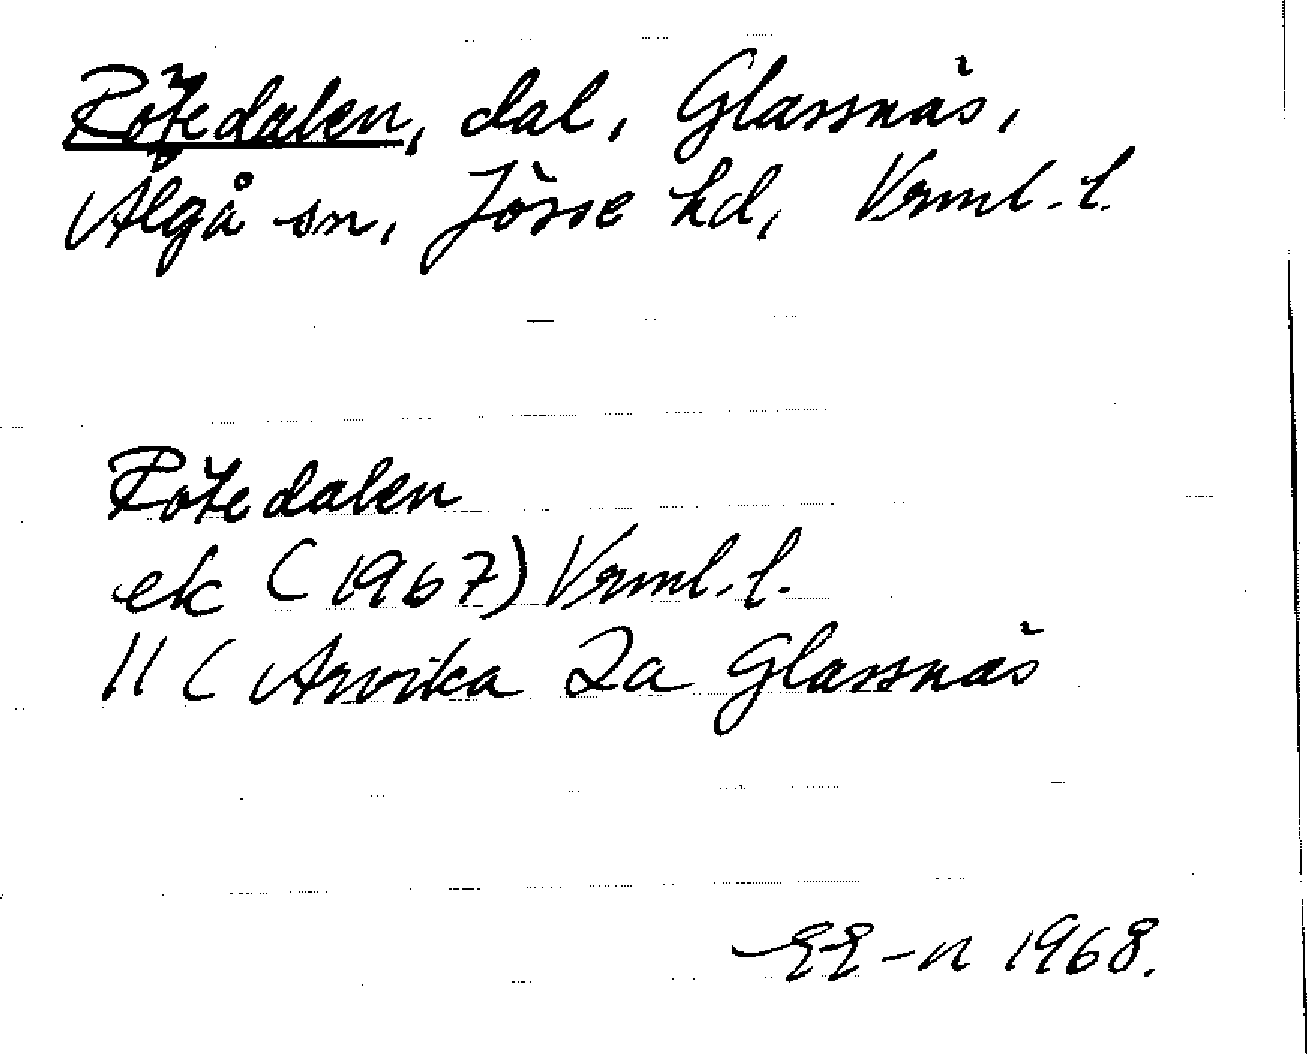 Rötedalen, dal, Glassnäs,
Älgå sn, Jösse hd, Vrml. l.
Rötedalen
ek (1967) Vrml. l.
11 C Arvika 2a Glassnäs
EE-n 1968.